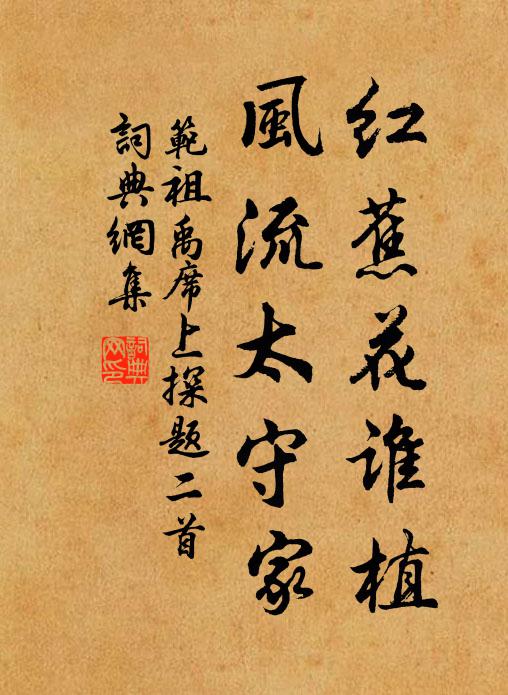 紅蕉花誰植
風流太守家
範祖禹席上探題二首
詞典網集
詞典網印